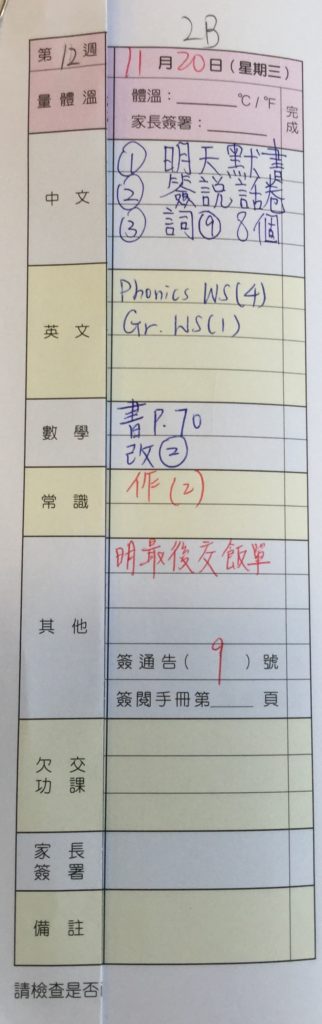 2B
第12週 11月20日(星期三)
量體溫 體溫：______℃/℉ 完成
家長簽署：______
中文 ① 明天默書
② 簽說話卷
③ 詞⑨ 8個
英文 Phonics WS(4)
Gr. WS(1)
數學 書P.70
改②
常識 作(2)
其他 明最後交飯單
簽通告( 9 )號
簽閱手冊第____頁
欠交
功課
家長
簽署
備註
請檢查是否